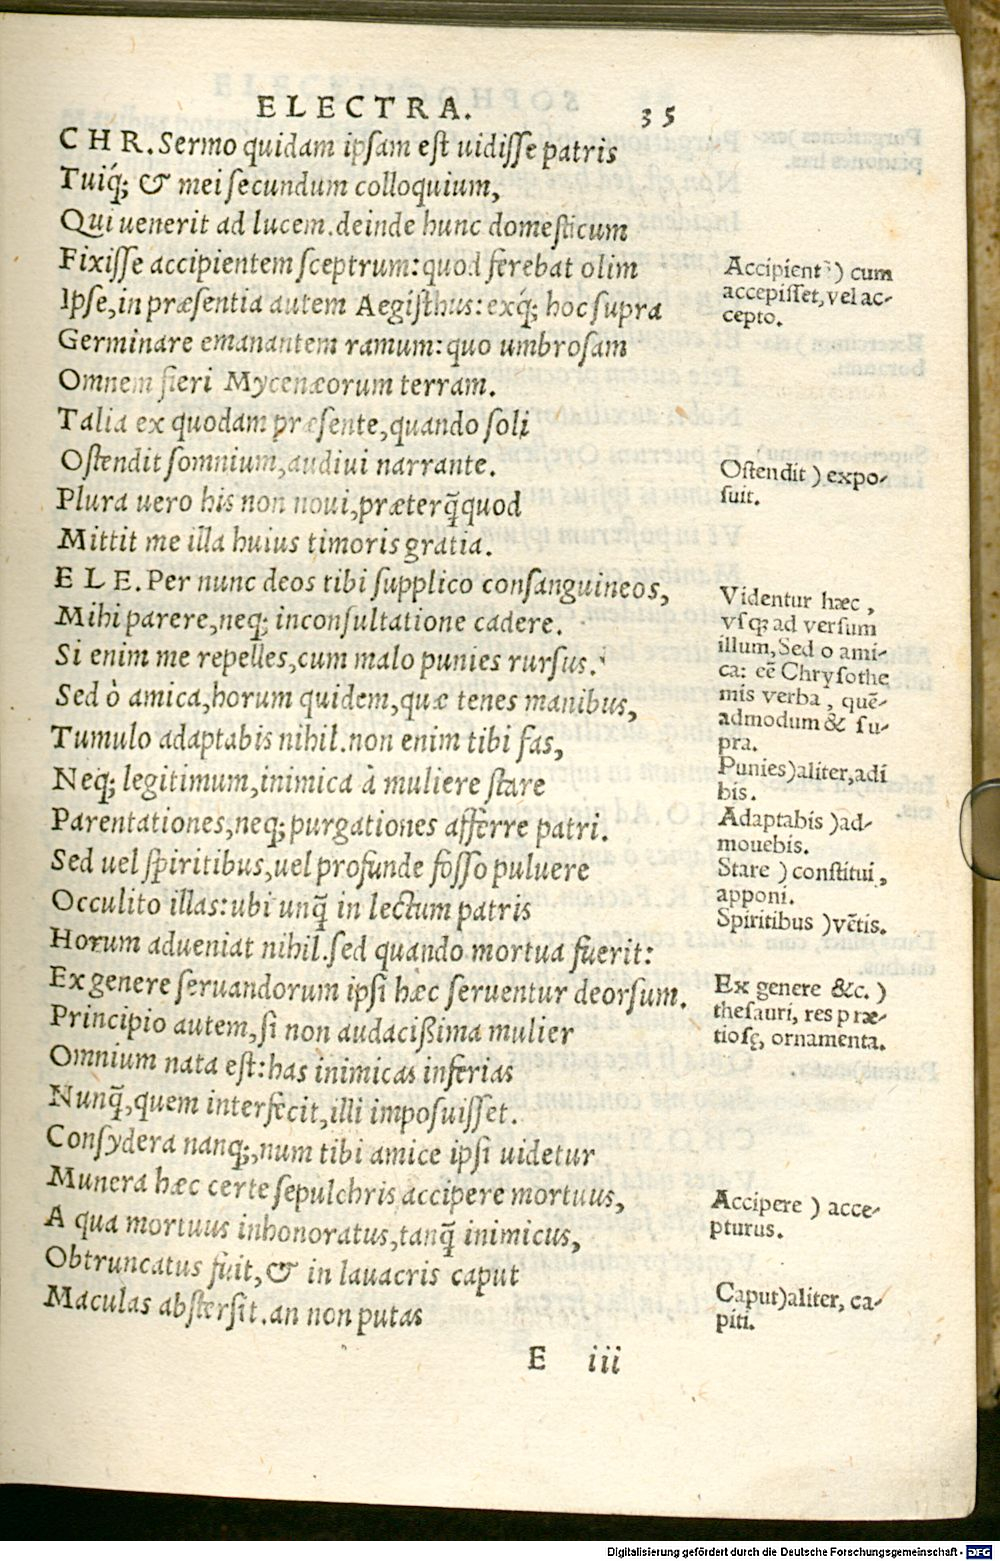 ELECTRA. 35
CHR. Sermo quidam ipsam est uidisse patris
Tuiq́; & mei secundum colloquium,
Qui uenerit ad lucem. deinde hunc domesticum
Fixisse accipientem sceptrum: quod ferebat olim
Ipse, in præsentia autem Aegisthus: exq́; hoc supra
Germinare emanantem ramum: quo umbrosam
Omnem fieri Mycenæorum terram.
Talia ex quodam præsente, quando soli
Ostendit somnium, audiui narrante.
Plura uero his non noui, præterq̃quod
Mittit me illa huius timoris gratia.
ELE. Per nunc deos tibi supplico consanguineos,
Mihi parere, neq; inconsultatione cadere.
Si enim me repelles, cum malo punies rursus.
Sed ò amica, horum quidem, quæ tenes manibus,
Tumulo adaptabis nihil. non enim tibi fas,
Neq; legitimum, inimica à muliere stare
Parentationes, neq; purgationes afferre patri.
Sed uel spiritibus, uel profunde fosso puluere
Occulito illas: ubi unq̃ in lectum patris
Horum adueniat nihil. sed quando mortua fuerit:
Ex genere seruandorum ipsi hæc seruentur deorsum.
Principio autem, si non audacißima mulier
Omnium nata est: has inimicas inferias
Nunq̃, quem interfecit, illi imposuisset.
Consydera nanq;, num tibi amice ipsi uidetur
Munera hæc certe sepulchris accipere mortuus,
A qua mortuus inhonoratus, tanq̃ inimicus,
Obtruncatus fuit, & in lauacris caput
Maculas abstersit. an non putas
E iii
Accipientẽ) cum
accepisset, vel ac-
cepto.
Ostendit) expo-
suit.
Videntur hæc,
vsq; ad versum
illum, Sed o ami-
ca: eẽ Chrysothe
mis verba, quẽ-
admodum & su-
pra.
Punies) aliter, adi
bis.
Adaptabis) ad-
mouebis.
Stare) constitui,
apponi.
Spiritibus) vẽtis.
Ex genere &c.)
thesauri, res præ-
tiosę, ornamenta.
Accipere) acce-
pturus.
Caput) aliter, ca-
piti.
Digitalisierung gefördert durch die Deutsche Forschungsgemeinschaft - DFG